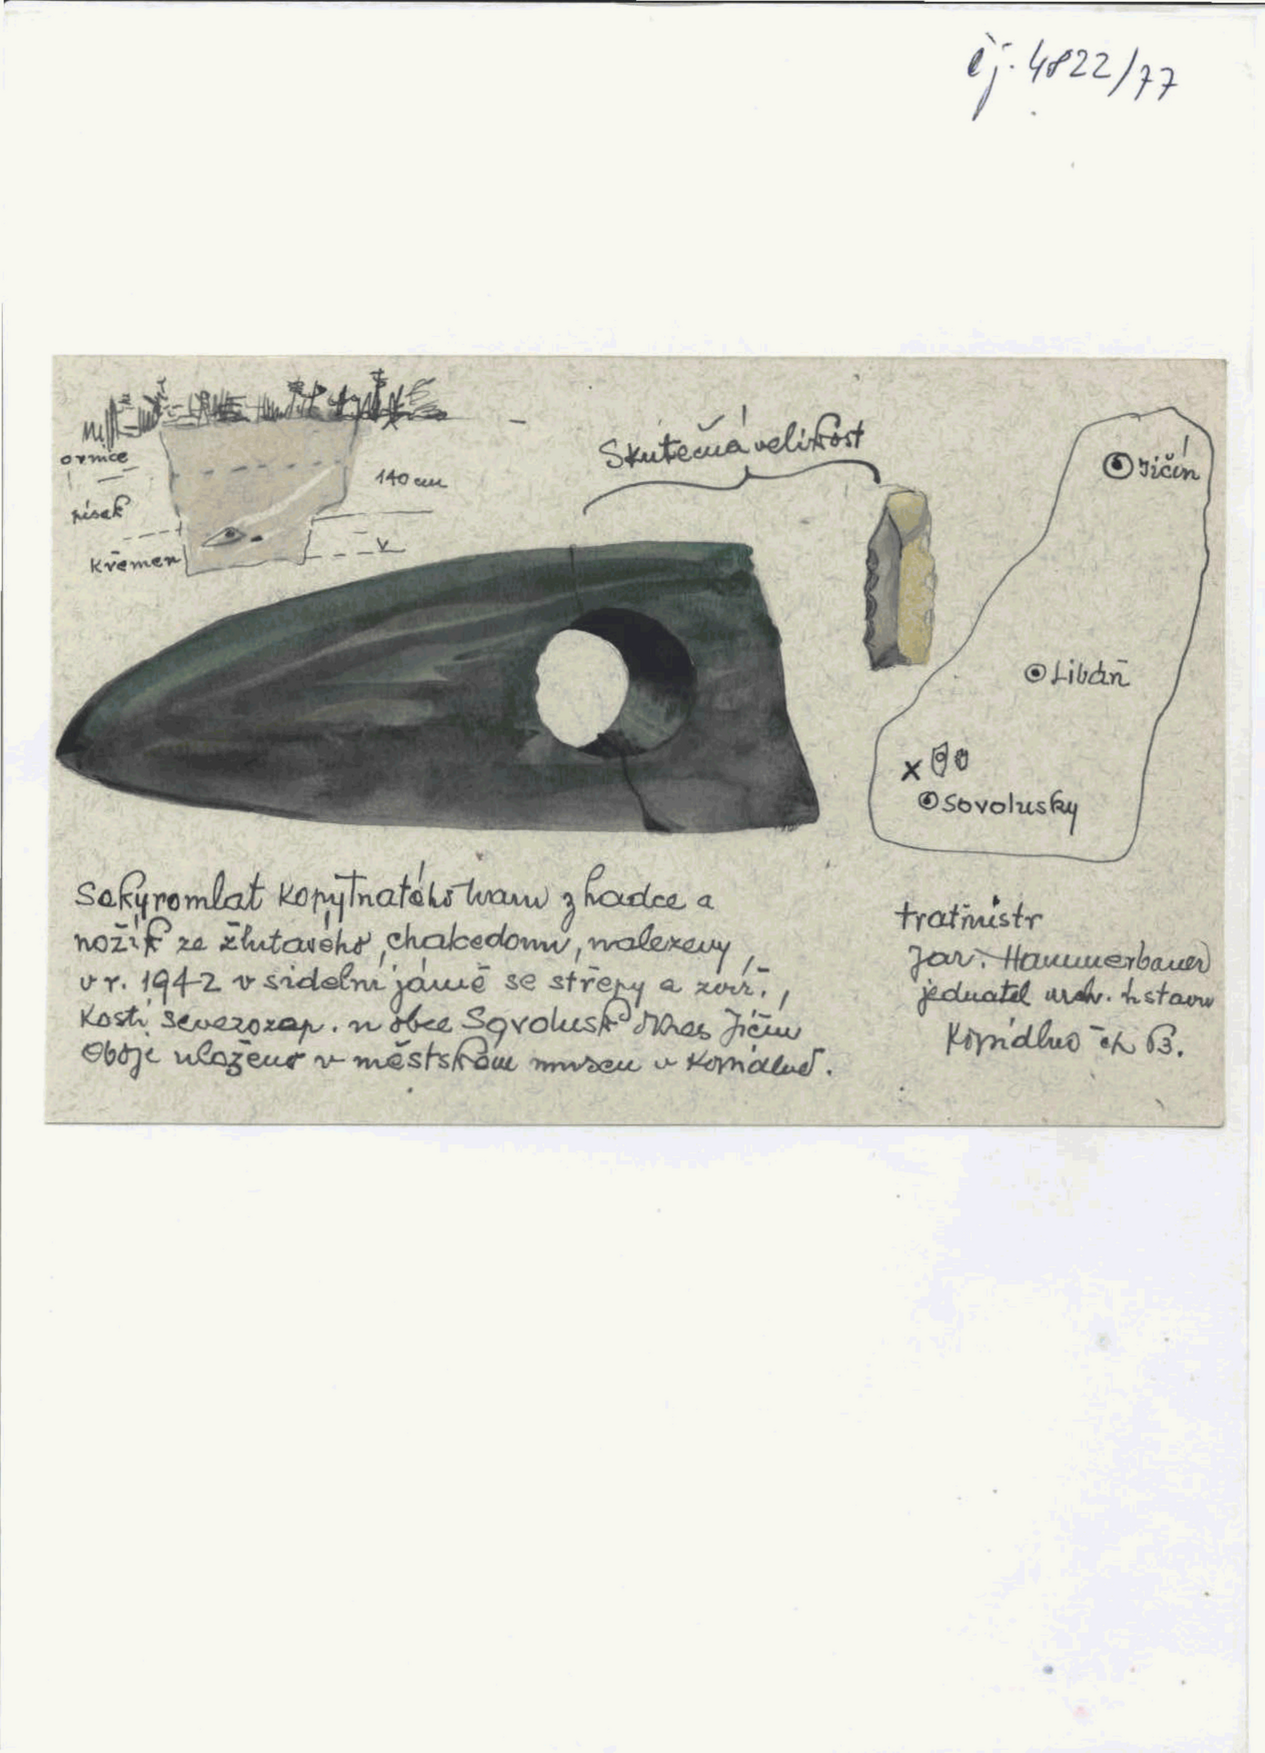 čj. 4822/77
Skutečná velikost
ornice
písek
křemen
140 cm
Jičín
Libáň
x
Sovolusky
Sekyromlat kopytnatého tvaru z hadce a
nožík ze žlutavého chalcedonu, nalezeny
v r. 1942 v sídelní jámě se střepy a zvíř.
kosti severozáp. u obce Sovolusk okres Jičín
Oboje uloženo v městském museu v Kopidlně.
traťmistr
Jar. Hammerbauer
jednatel arch. ústavu
Kopidlno čp.